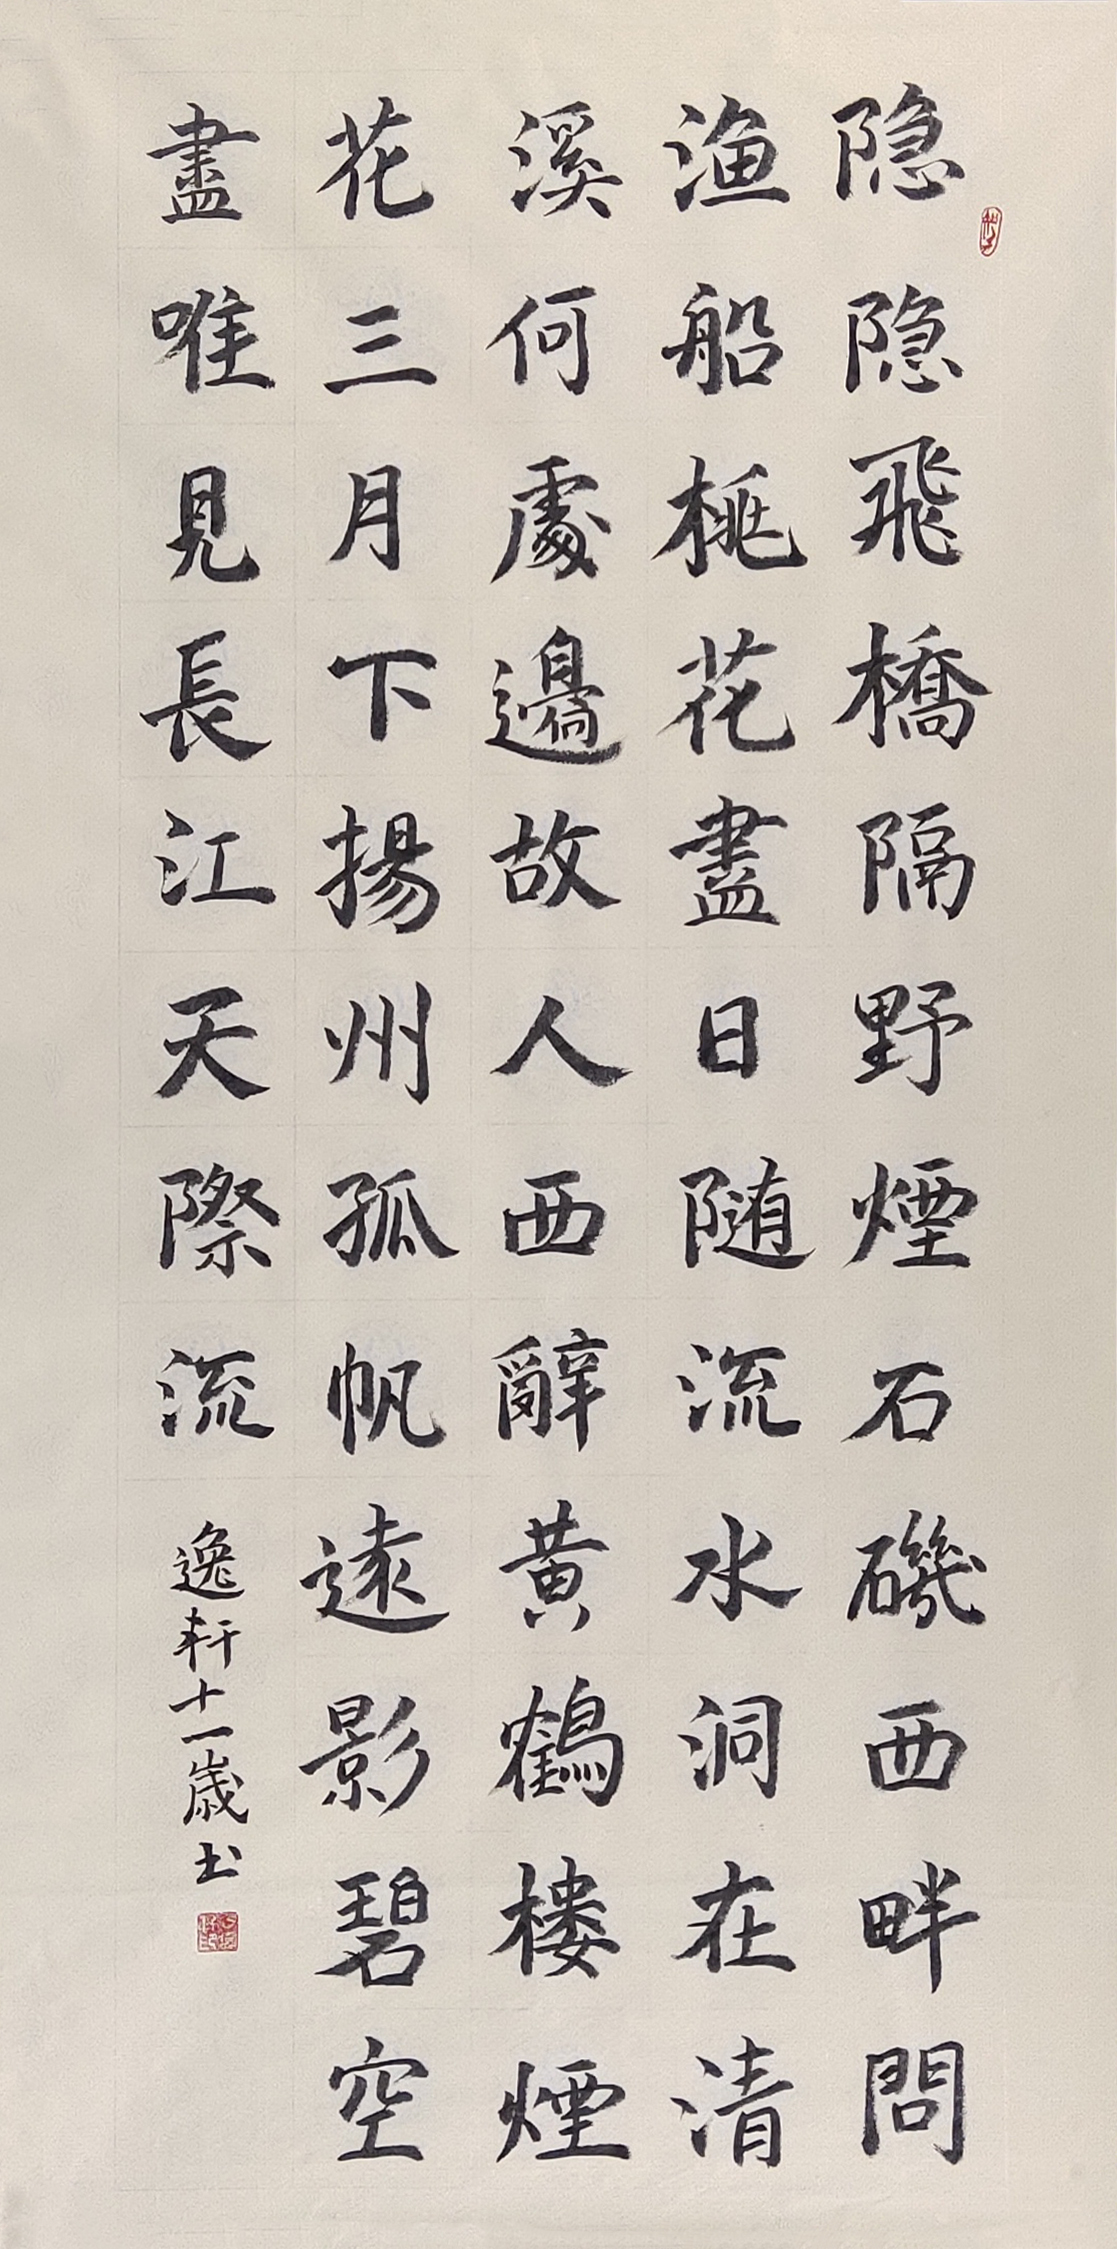 隐隐飛橋隔野煙石磯西畔問
渔船桃花盡日随流水洞在清
溪何處邊故人西辭黃鶴樓煙
花三月下揚州孤帆遠影碧空
盡唯見長江天際流
逸軒十一歲书